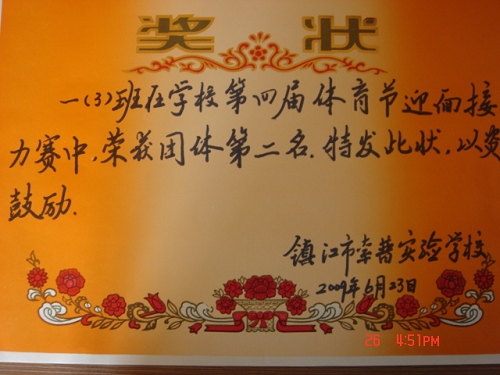 奖 状
一(3)班在学校第四届体育节迎面接
力赛中,荣获团体第二名.特发此状,以资
鼓励.
镇江市索普实验学校
2009年6月23日
26 4:51PM